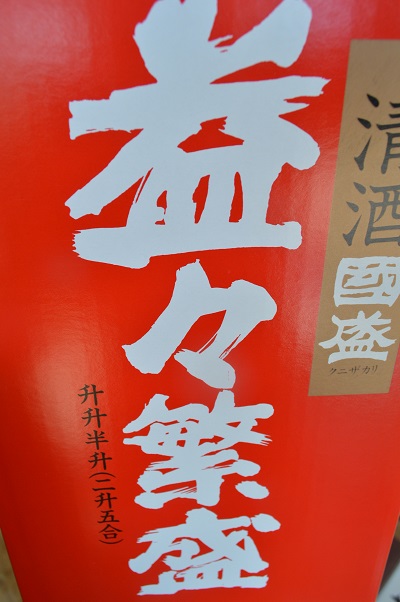 清酒
國盛
クニザカリ
益々繁盛
升升半升(二升五合)